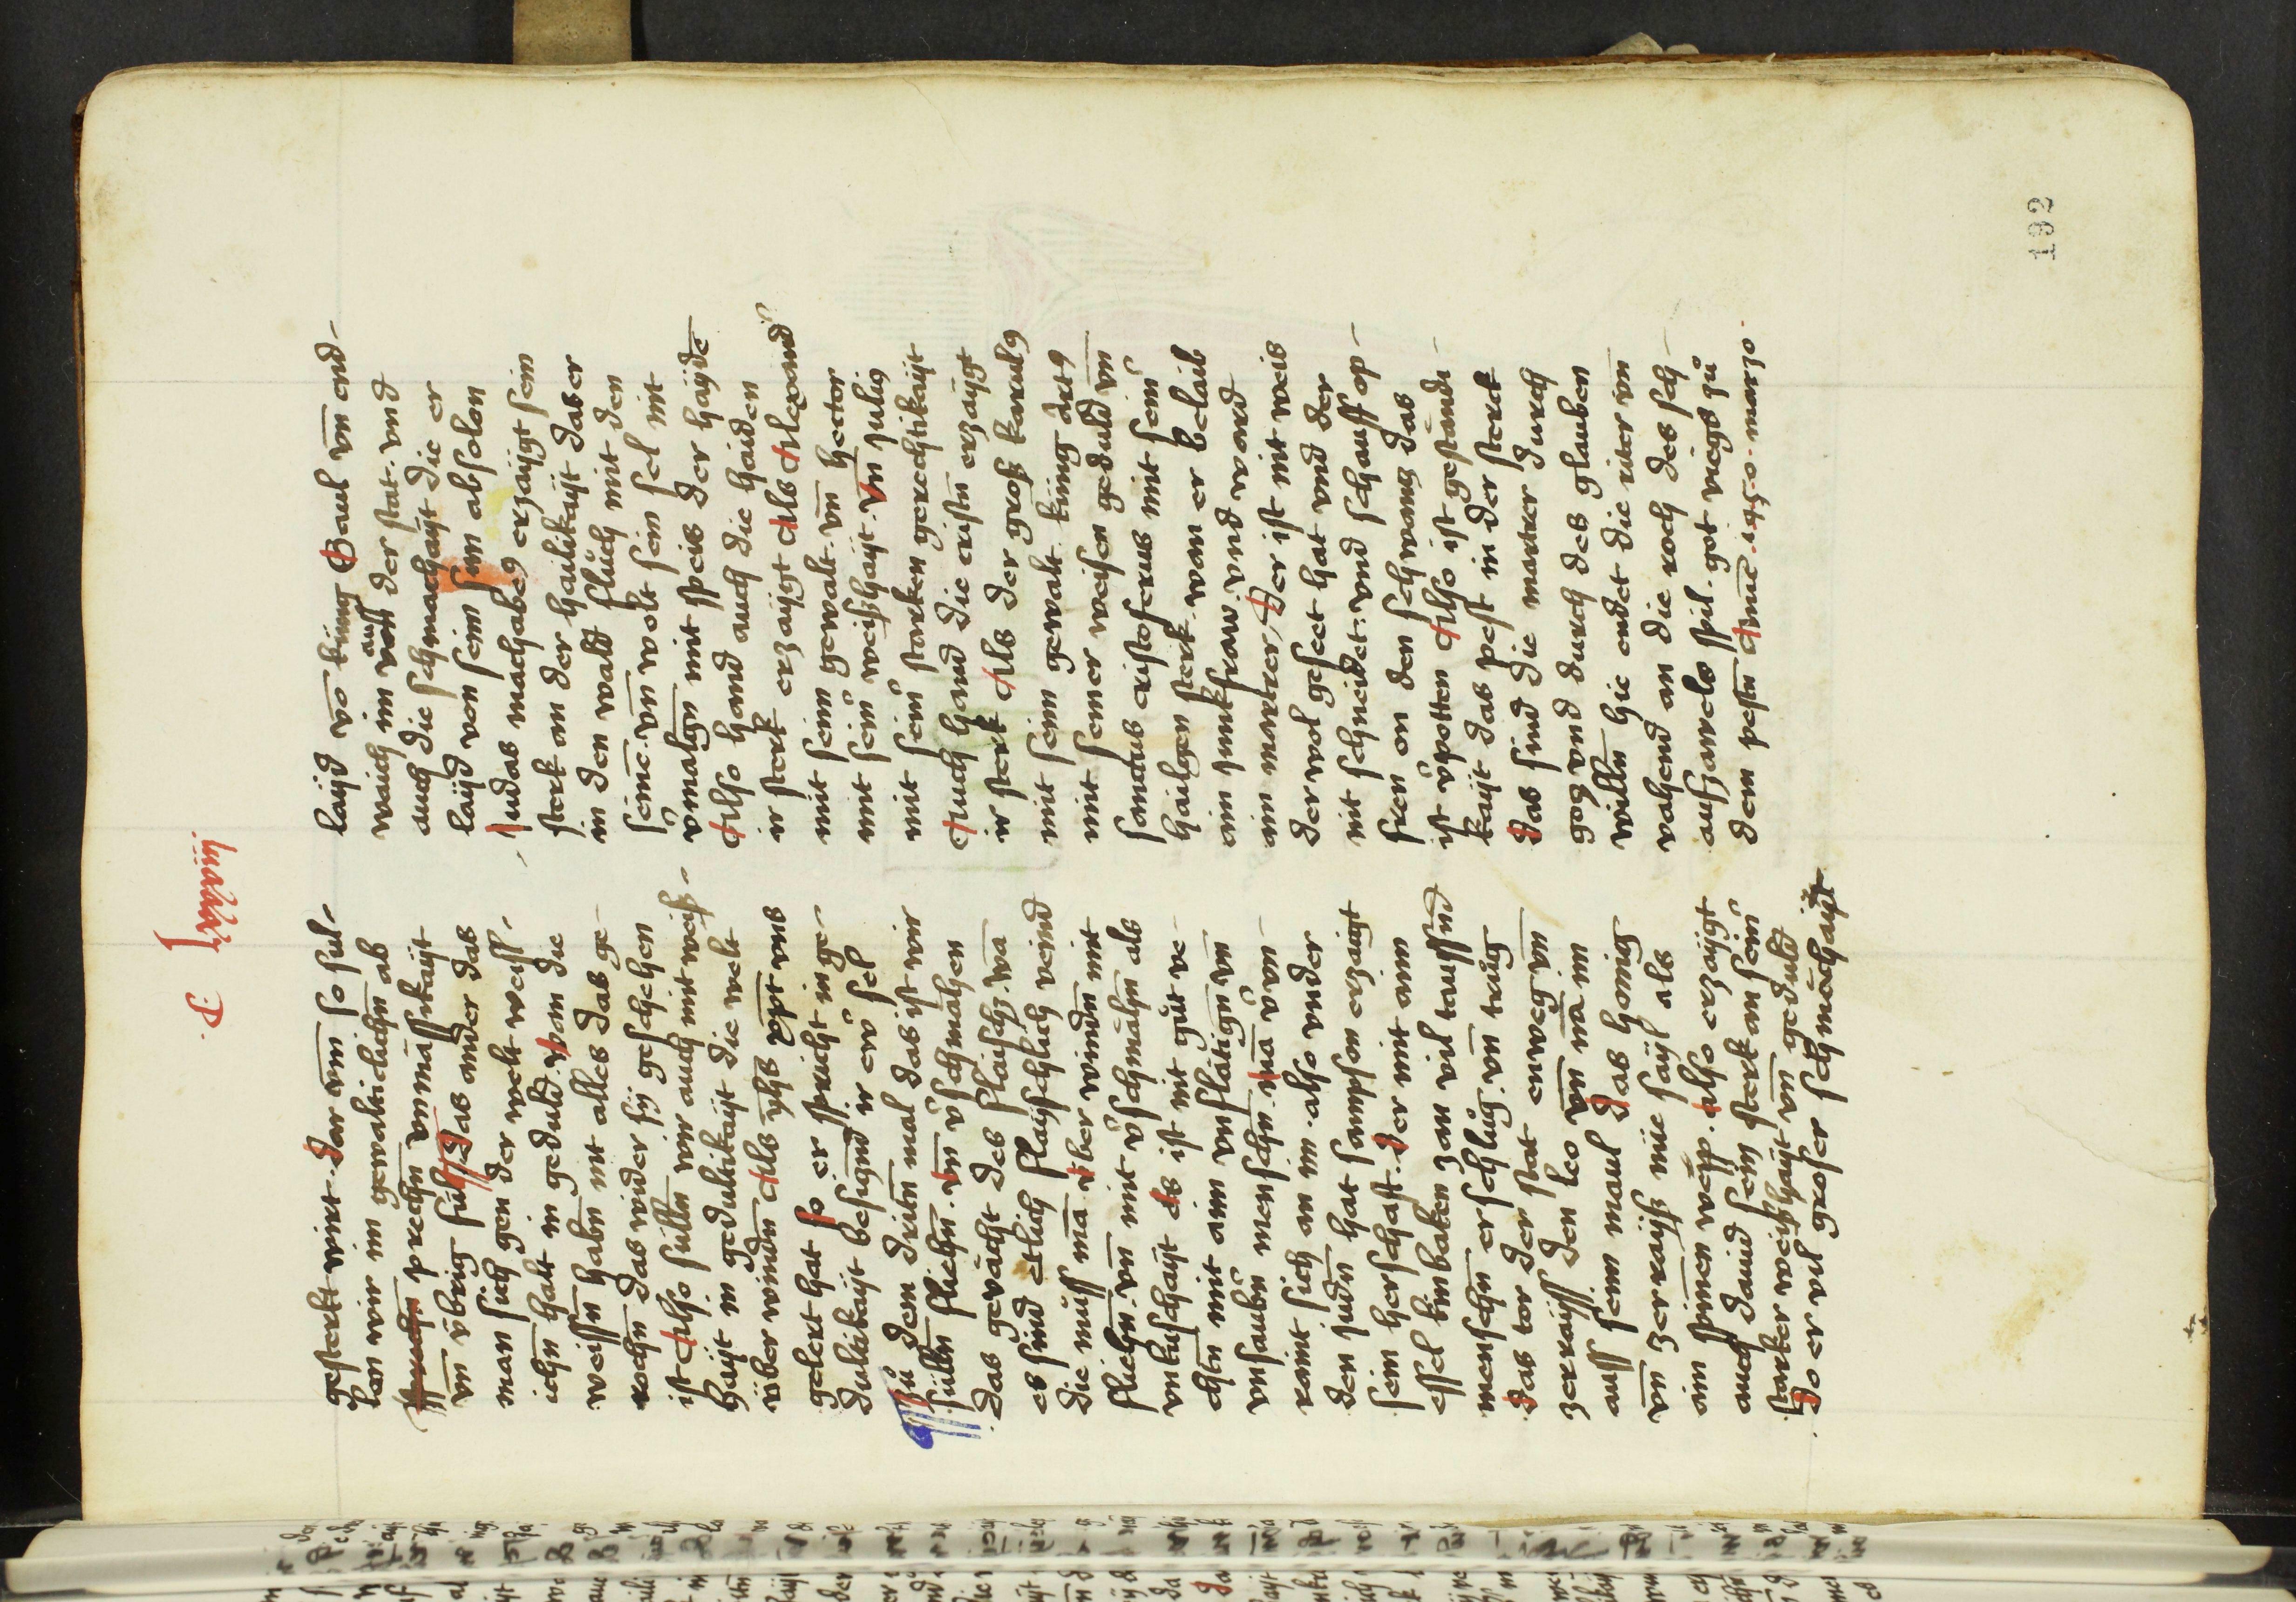 C lxxxviij
192
gesterkt wirt. Dar vm̄ so sul-
len wir im gewalticlichn̄ ab
sprechn̄ prechn̄ vnmässikayt
vn̄ v̈brig füll Das ander das
man sich gen der welt weiss-
ichn̄ halt in geduld. wan die
weissn̄ habn̄ nit alles das ge-
rochn̄ das wider sÿ geschehen
ist Also sülln̄ wir auch mit weiß-
hayt in gedultikayt die welt
v̈ber windn̄ Als yh̄s xp̄t vns
gelert hat so er spricht in ge-
dultikayt besiczn̄d ir ewr sel
Zů dem dritn̄ mal das ist wir
sülln̄ fliehn̄ vn̄ v̓schmähen
das geväsht des flaischs. wā
es sind etlich flayschlich veind
die můss mā v̈ber windn̄ mit
fliehn̄. vn̄ mit v̓schmähn̄ als
vnkuschayt Es ist nit gůt ve-
chtn̄ mit aim vnflätign̄ vn̄
vnsaubn̄ menschn̄. mā v̓vn-
raint sich an im. also vnder
den judn̄ hat sampson erzaigt
sein herschaft. Der mit aim
essel kinbaken zan vil taussn̄d
menschn̄ erschlůg. vn̄ trůg
Das tor der stat enweg vn̄
zerraÿss den leo vn̄ nā im
auss seim maul Das honig
vn̄ zerraÿß nüe sayl als
ain spinnen wepp. Also erzaygt
auch dauid sein sterk an seinr
starker weißhayt vn̄ geduld
Do er vil groser schmachhayt
layd vō küng Saul vn̄ end-
waich im auss der stat. vnd
auch die schmachayt die er
layd von seim sun absolon
Judas machabeꝰ erzaygt sein
sterk an der hailikayt das er
in den wald flüch mit den
seinē. vn̄ wolt sein sel nit
v̓malgn̄ mit speis der haydē
Also hand auch die haiden
ir sterk erzaygt Als Alexand̓
mit seim gewalt. vn̄ hector
mit seinr weißhayt. vn̄ juliꝰ
mit seinr starken gerechtikayt
Auch hand die cristn̄ erzaygt
ir sterk Als der groß karulꝰ
mit seim gewalt. küng artꝰ
mit seiner weisen geduld vn̄
sanctus cristoferus mit seinr
hailgen sterk. wan er belaib
ain junkfraw. vnd ward
ain martrer. Der ist nit weis
der wol geseet hat vnd der
nit schneidet. vnd schauff op-
fren on den schwancz das
ist v̓potten Also ist gestandi-
kayt das pest in der sterk
Das sind die martrer durch
gog vnd durch des glauben
willn̄ hie endet die riter vn̄
vahend an die roch des sch-
aufzawels spil. got vüegs zů
dem pestn̄ Amē 1450. marzo.